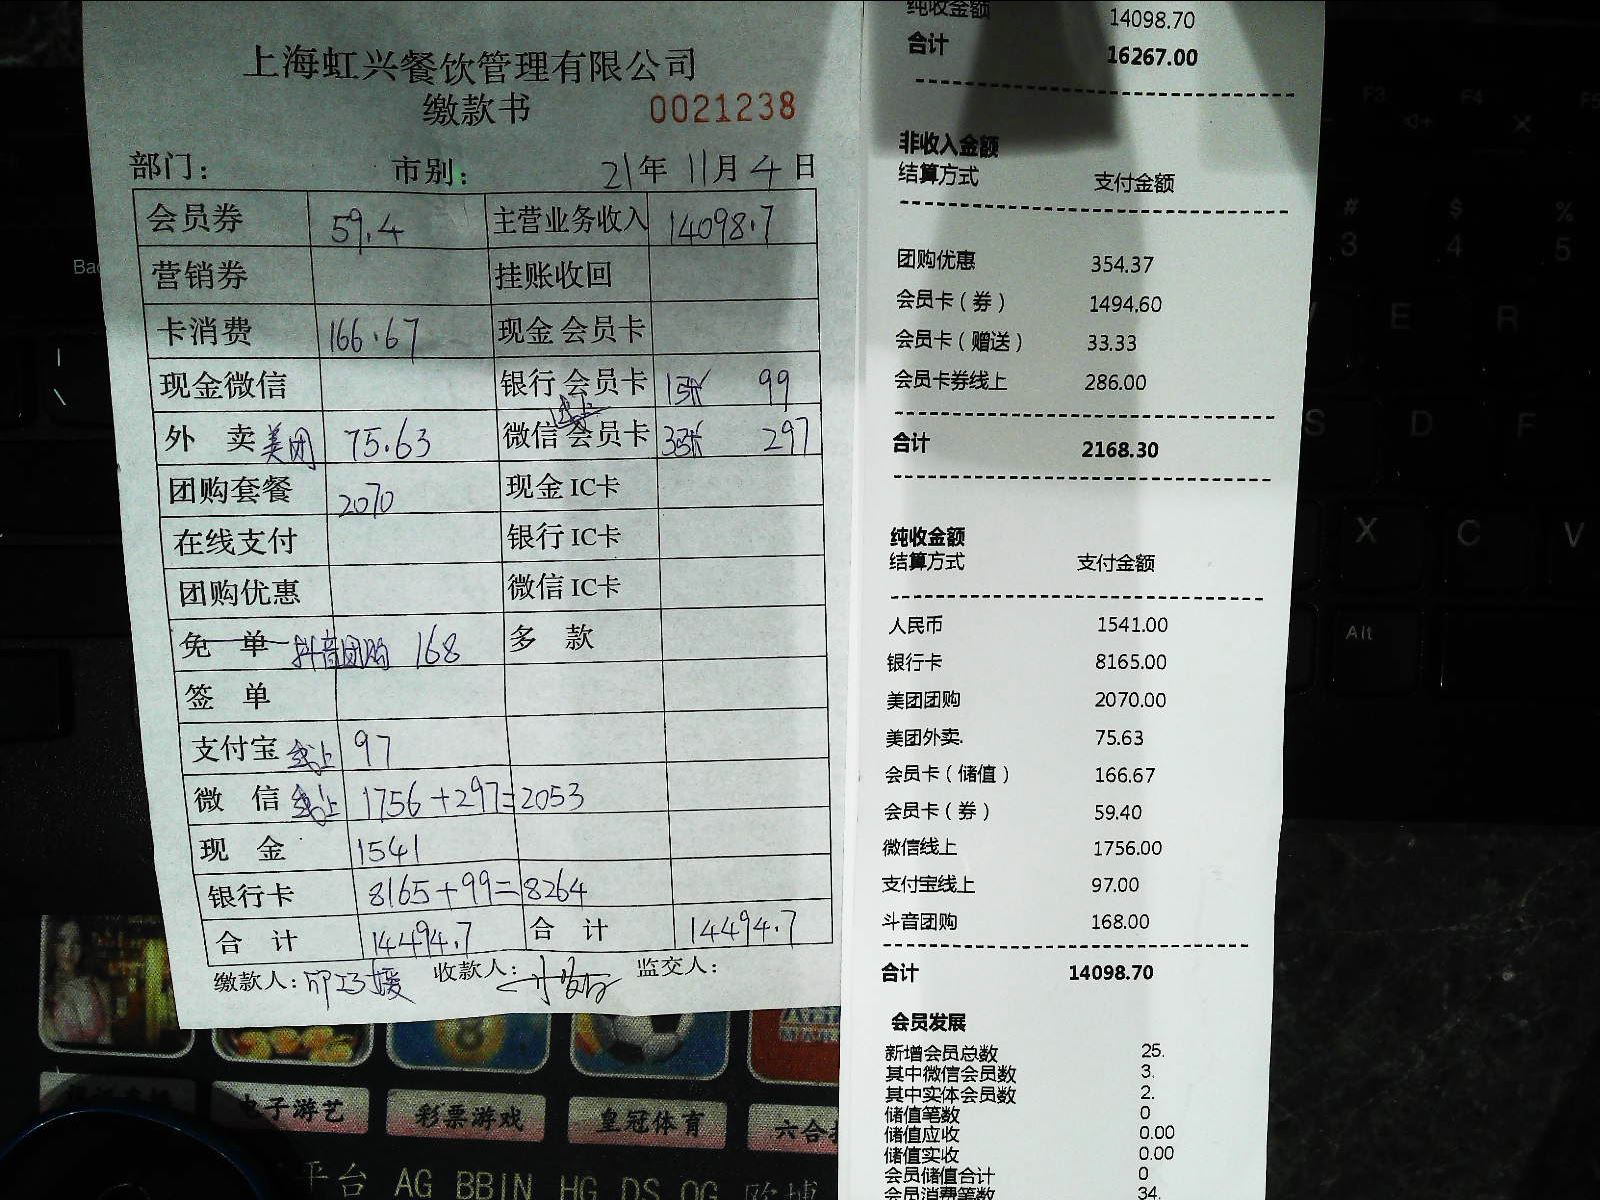 上海虹兴餐饮管理有限公司
缴款书 0021238
部门： 市别： 21年 11月 4日
会员券 59.4 主营业务收入 14098.7
营销券 挂账收回
卡消费 166.67 现金 会员卡
现金微信 银行 会员卡 1张 99
外 卖 美团 75.63 微信 线上 会员卡 3张 297
团购套餐 2070 现金 IC卡
在线支付 银行 IC卡
团购优惠 微信 IC卡
免 单 抖音团购 168 多 款
签 单
支付宝 线上 97
微 信 线上 1756+297=2053
现 金 1541
银行卡 8165+99=8264
合 计 14494.7 合 计 14494.7
缴款人： 收款人： 监交人：
纯收金额 14098.70
合计 16267.00
非收入金额
结算方式 支付金额
团购优惠 354.37
会员卡（券） 1494.60
会员卡（赠送） 33.33
会员卡券线上 286.00
合计 2168.30
纯收金额
结算方式 支付金额
人民币 1541.00
银行卡 8165.00
美团团购 2070.00
美团外卖. 75.63
会员卡（储值） 166.67
会员卡（券） 59.40
微信线上 1756.00
支付宝线上 97.00
斗音团购 168.00
合计 14098.70
会员发展
新增会员总数 25.
其中微信会员数 3.
其中实体会员数 2.
储值笔数 0
储值应收 0.00
储值实收 0.00
会员储值合计 0
会员消费笔数 34.
电子游艺 彩票游戏 皇冠体育 六合
平台 AG BBIN HG DS OG 欧博
F3 F4 F5
# 3 $ 4 % 5
E R
S D F
X C V
Alt
Bac